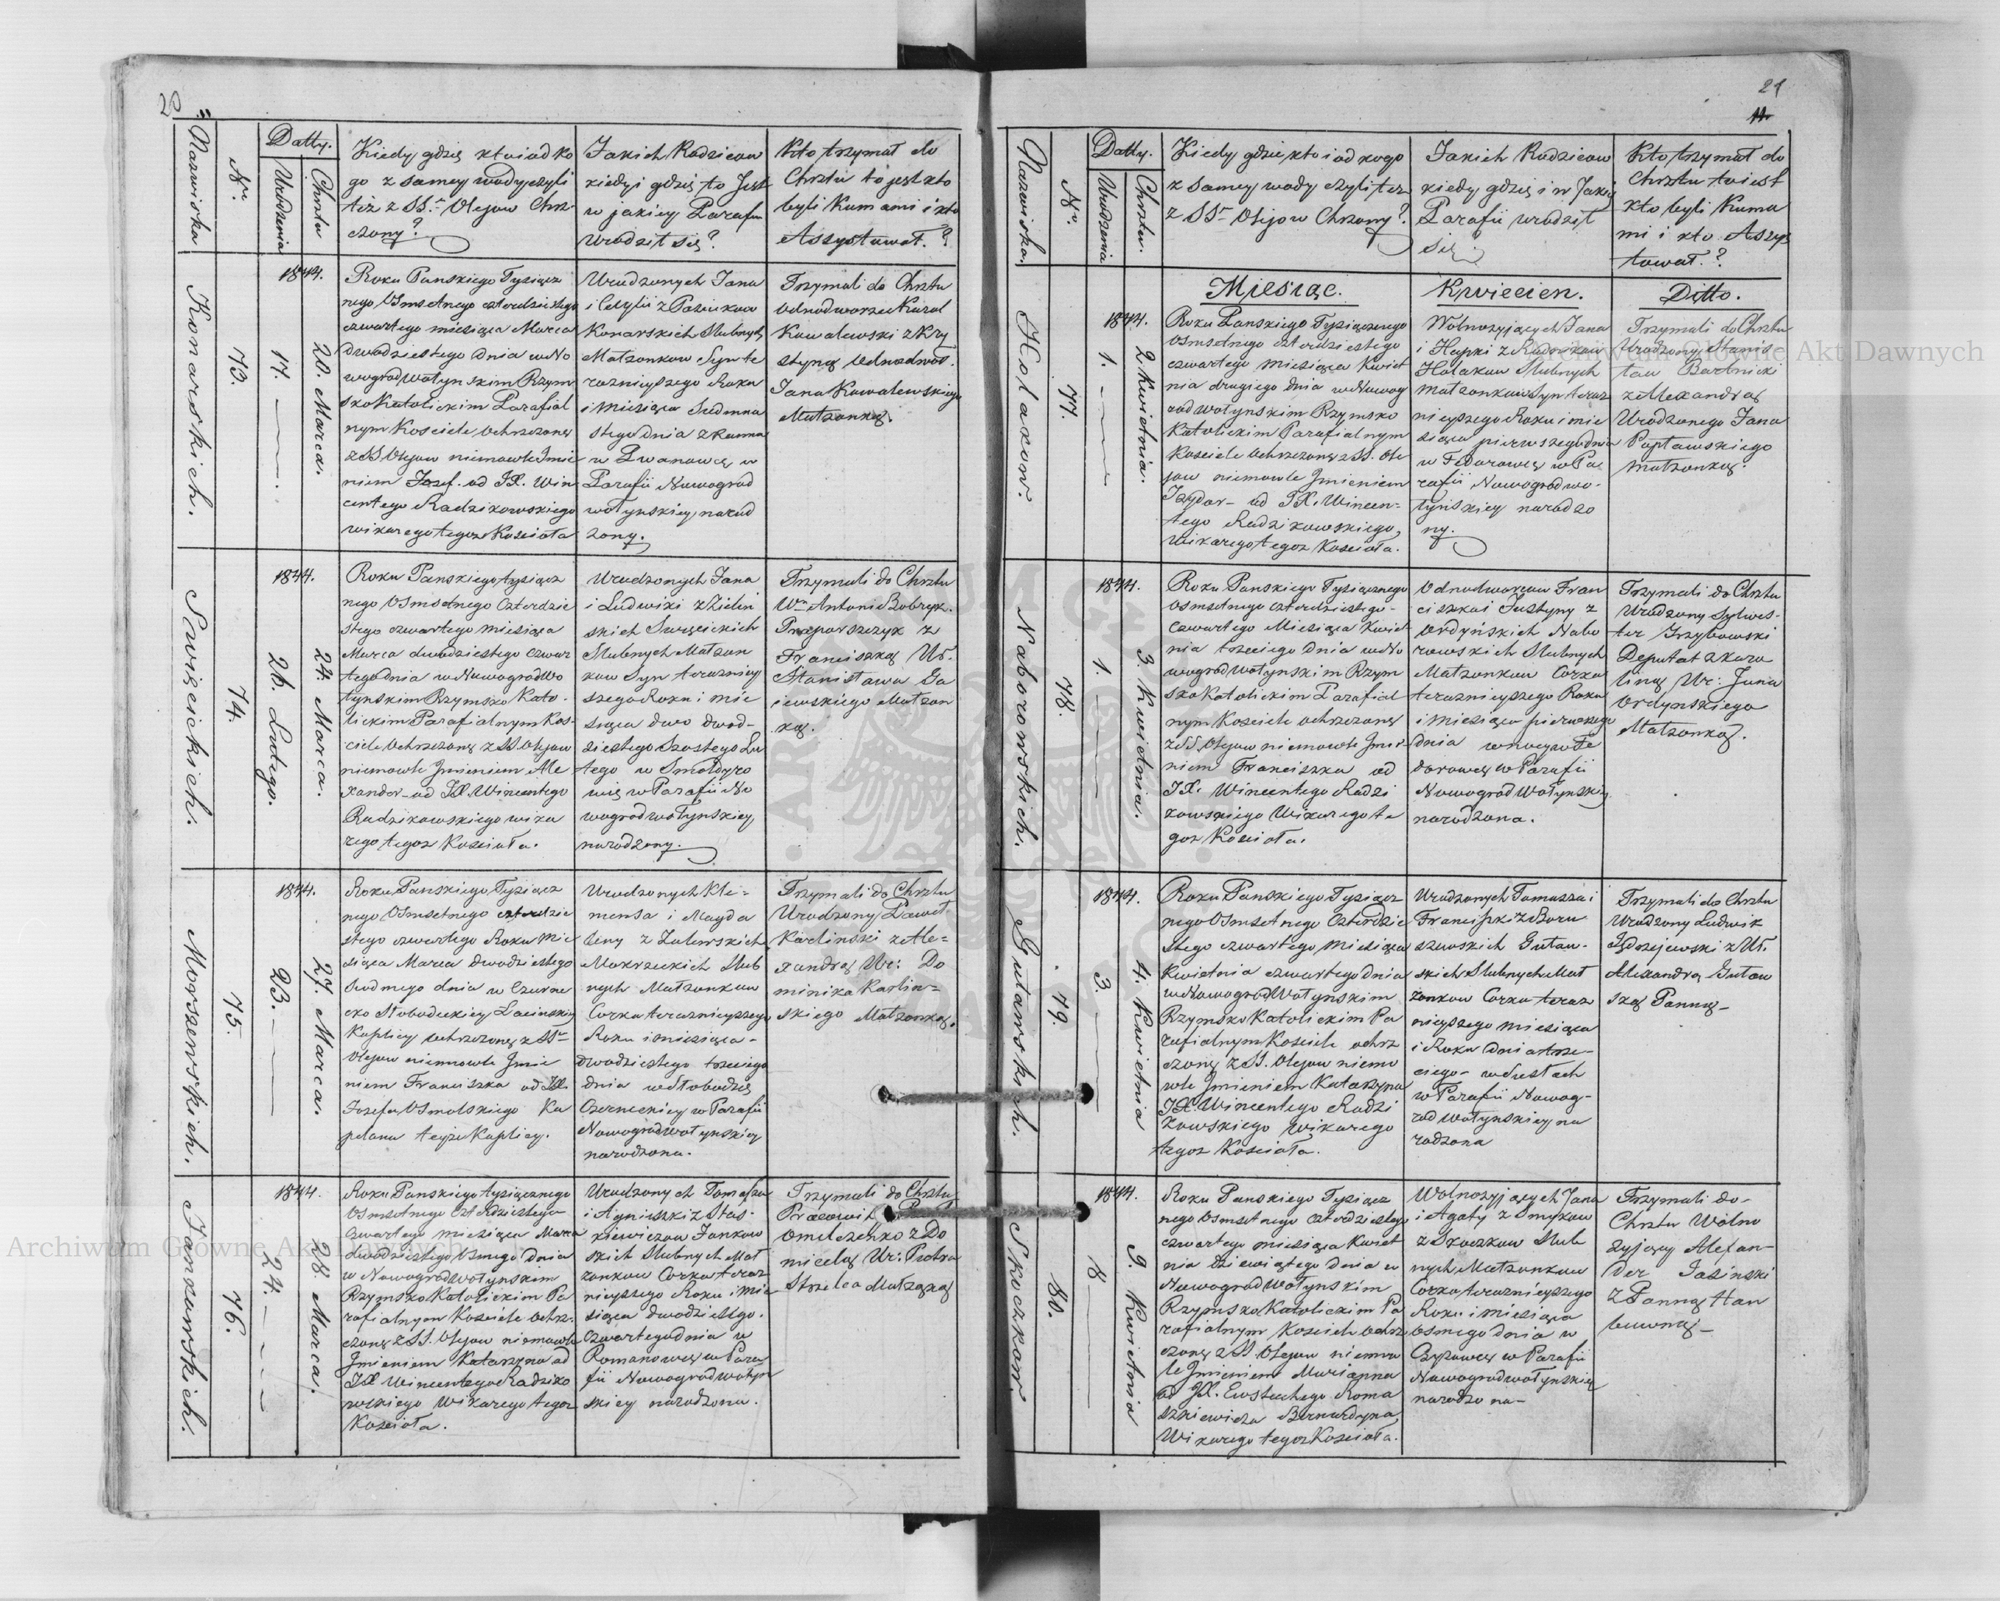 20
Nazwiska
Nr.
Datty.
Urodzenia
Chrztu
Kiedy gdzie kto i od ko
go z samey wody czyli
też z SS. Olejow Chrz
czony?
Jakich Rodzicow
kiedy i gdzie to Jest
w jakiey Parafii
Urodził się?
Kto trzymał do
Chrztu to jest kto
byli Kumami i kto
Assystował.?
Konarskich.
73.
1844.
17.
20. Marca.
Roku Panskiego Tysiącz
nego Osmsetnego czterdziestego
czwartego miesiąca Marca
dwudziestego dnia w No
wogrodwołynskim Rzym
sko Katolickim Parafial
nym Kosciele ochrzczony
z SS Olejow niemowle Imie
niem Jozef od JX. Win
centego Radzikowskiego
wikarego tegoz Koscioła
Urodzonych Jana
i Cecylii z
Konarskich Slubnych
Małzonkow Syn te
raznieyszego Roku
i Miesiąca Siedmna
stego dnia z
w Iwanowce w
Parafii Nowogrod
wołynskiey narod
zony.
Trzymali do Chrztu
Odnodworzec Karol
Kowalewski z Kry
styną Odnodwor.
Jana Kowalewskiego
Małzonką.
Swięcickich.
74.
1844.
26. Lutego.
24. Marca.
Roku Panskiego tysiącz
nego Osmsetnego czterdzie
stego czwartego miesiąca
Marca dwudziestego czwar
tego dnia w Nowogrodwo
łynskim Rzymsko Kato
lickim Parafialnym Kos
ciele Ochrzczony z SS Olejow
niemowle Imieniem Ale
xander od JX. Wincentego
Radzikowskiego wika
rego tegoz Kosciola.
Urodzonych Jana
i Ludwiki z Zielin
skich Swięcickich
Slubnych Małzon
kow Syn terazniey
szego Roku i mie
siąca dwudziestego
Szostego Lu
tego w Smołdyro
wie w Parafii No
wogrodwołynskiey
narodzony.
Trzymali do Chrztu
Antoni Bobryk.
z
Franciszką Ur.
Stanisława Ga
jewskiego Małzon
ką.
Morszewskich.
75.
1844.
23.
27. Marca.
Roku Panskiego Tysiącz
nego Osmsetnego czterdzie
stego czwartego Roku Mie
siąca Marca dwudziestego
siodmego dnia w Czerne
cko Słobodzkiey Łacinskiey
Kaplicy ochrzczony z SS
Olejow niemowle Imie
niem Franciszka od JX.
Jozefa Osmolskiego Ka
pelana teyze Kaplicy.
Urodzonych Kle-
mensa i Magda
leny z Zalewskich
Slub
nych Małzonkow
Corka teraznieyszego
Roku i miesiąca -
Dwudziestego trzeciego
dnia w Słobodzie
Czerneckiey w Parafii
Nowogrodwołynskiey
narodzona.
Trzymali do Chrztu
Urodzony Paweł
Karlinski z Ale-
xandrą Ur: Do
minika Karlin-
skiego Małzonką.
Jankowskich.
76.
1844.
24.
28. Marca.
Roku Panskiego tysiącznego
Osmsetnego czterdziestego
czwartego miesiąca Marca
dwudziestego Osmego dnia
w Nowogrodwołynskim
Rzymsko Katolickim Pa
rafialnym Kosciele Ochrz
czony z SS. Olejow niemowle
Imieniem Katarzyna od
JX Wincentego Radziko
wskiego Wikarego tegoz
Kosciola.
Urodzonych Tomasza
i Agnieszki z Stas-
kiewiczow Jankow
skich Slubnych Mał
zonkow Corka teraz
nieyszego Roku i mie
siąca dwudziestego
Czwartego dnia w
Romanowce w Para
fii Nowogrodwołyn
skiey narodzona.
Trzymali do Chrztu
Omelczenko z Do
micelą Ur: Piotra
Strzelca Małzonką
21
11
Nazwiska
Nr.
Datty.
Urodzenia
Chrztu.
Kiedy gdzie kto i od kogo
z samey wody czyli tez
z SS Olejow Chrzczony?
Jakich Rodzicow
kiedy gdzie i w Jakiey
Parafii urodził
się
Kto trzymał do
Chrztu to iest
kto byli Kuma
mi i kto Assys
tował.?
Miesiąc.
Kwiecien.
Ditto.
Holakow.
77.
1844.
1.
2 Kwietnia.
Roku Panskiego Tysiącznego
Osmsetnego czterdziestego
czwartego miesiąca Kwiet
nia drugiego dnia w Nowog
rodwołynskim Rzymsko
Katolickim Parafialnym
Kosciele ochrzczony z SS. Ole
jow niemowle Imieniem
Izydor - od JX. Wincen-
tego Radzikowskiego
Wikarego tegoz Kosciola.
Wolnozyjących Jana
i Hapki z
Holakow Slubnych
małzonkow Syn teraz
nieyszego Roku i mie
siąca pierwszego dnia
w Fedorowce w Pa
rafii Nowogrodwo-
łynskiey narodzo
ny.
Trzymali do Chrztu
Urodzony Stanis
ław Bartnicki
z Alexandrą
Urodzonego Jana
Popławskiego
małzonką.
Naborowskich.
78.
1844.
1.
3. Kwietnia.
Roku Panskiego Tysiącznego
Osmsetnego czterdziestego
czwartego Miesiąca Kwiet
nia trzeciego dnia w No
wogrodwołynskim Rzym
sko Katolickim Parafial
nym Kosciele Ochrzczony
z SS. Olejow niemowle Imie
niem Franciszka od
JX. Wincentego Radzi
kowskiego Wikarego te
goz Kosciola.
Odnodworcow Fran
ciszka i Justyny z
Ordynskich Nabo
rowskich Slubnych
Małzonkow Corka
teraznieyszego Roku
i miesiąca pierwszego
dnia w nocy w Fe
dorowce w Parafii
Nowogrodwołynskiey
narodzona.
Trzymali do Chrztu
Urodzony Sylwes-
ter Grzybowski
Deputat z Karo
liną Ur: Jana
Ordynskiego
Małzonką.
Gutawskich.
79.
1844.
3.
4. Kwietnia
Roku Panskiego Tysiącz
nego Osmsetnego Czterdzie
stego czwartego miesiąca
Kwietnia czwartego dnia
w Nowogrodwołynskim
Rzymsko Katolickim Pa
rafialnym Kosciele ochrz
czony z SS. Olejow niemo
wle Imieniem Katarzyna
JX Wincentego Radzi
kowskiego wikarego
tegoz Kosciola.
Urodzonych Tomasza i
Franciszki z Boru
szewskich Gutaw-
skich Slubnych Mał
zonkow Corka teraz
nieyszego miesiąca
i Roku dnia trze-
ciego -
w Parafii Nowog-
rodwołynskiey na
rodzona
Trzymali do Chrztu
Urodzony Ludwik
Jędrzejewski z Ur.
Alexandrą Gutow
ską Panną -
Skoczkow
80.
1844.
8
9. Kwietnia
Roku Panskiego Tysiącz
nego Osmsetnego czterdziestego
czwartego miesiąca Kwiet
nia Dziewiątego dnia w
Nowogrodwołynskim
Rzymsko Katolickim Pa
rafialnym Kosciele Ochrz
czony z SS Olejow niemow
le Imieniem Marianna
od JX. Eustachego Roma
szkiewicza Bernardyna
Wikarego tegoz Kosciola.
Wolnozyjących Jana
i Agaty z Smykow
z Skoczkow Slub
nych Małzonkow
Corka teraznieyszego
Roku i miesiąca
Osmego dnia w
w Parafii
Nowogrodwołynskiey
narodzona -
Trzymali do -
Chrztu Wolno
zyjący Alexan-
der Jasinski
z Panną Han
Archiwum Główne Akt Dawnych
Archiwum Główne Akt Dawnych